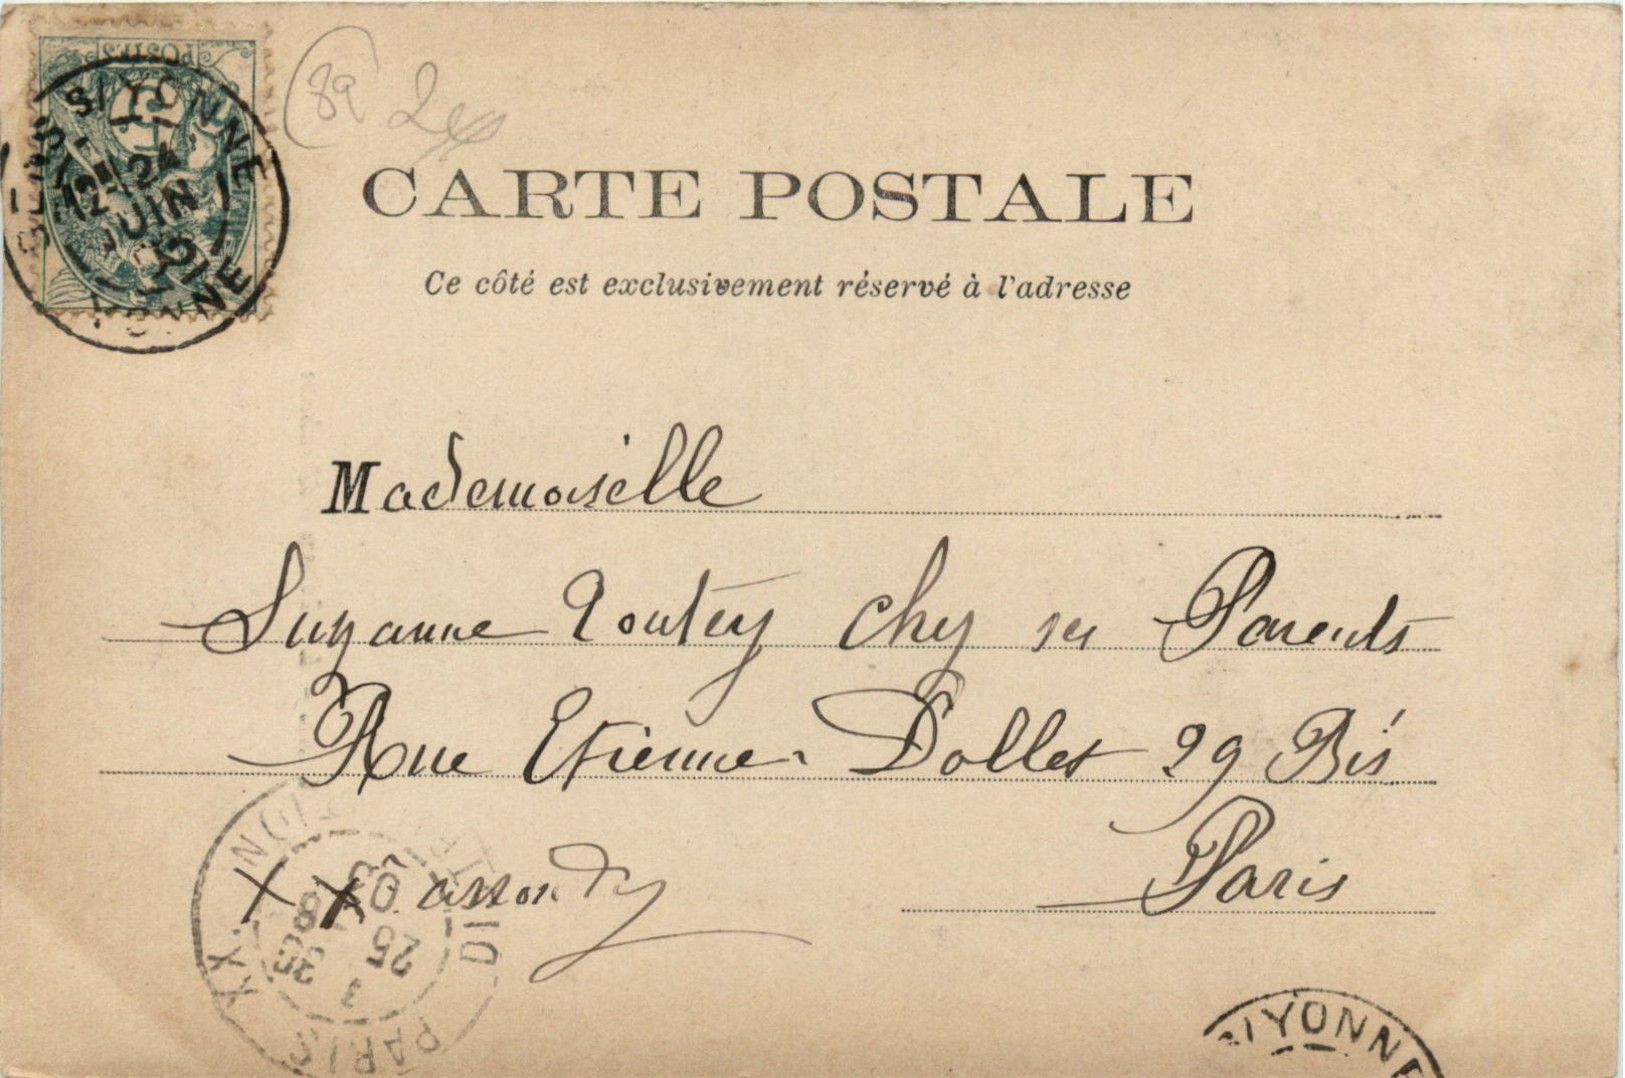 POSTES
SENS S/YONNE
12 24
JUIN
02
YONNE
89
CARTE POSTALE
Ce côté est exclusivement réservé à l'adresse
Mademoiselle
Suzanne Toutey chez ses Parents
Rue Etienne Dollet 29 Bis
Paris
XX
PARIS XX
DISTRIBUTION
25
03
S/YONNE